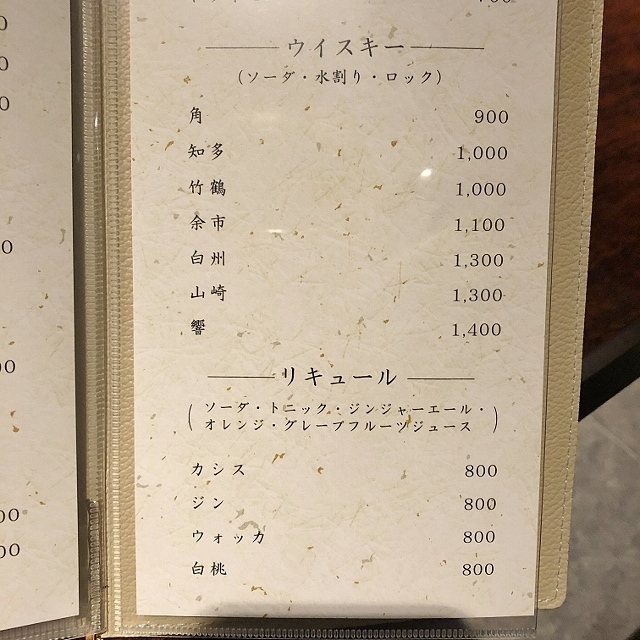 ウイスキー
(ソーダ・水割り・ロック)
角 900
知多 1,000
竹鶴 1,000
余市 1,100
白州 1,300
山崎 1,300
響 1,400
リキュール
(ソーダ・トニック・ジンジャーエール・
オレンジ・グレープフルーツジュース)
カシス 800
ジン 800
ウォッカ 800
白桃 800